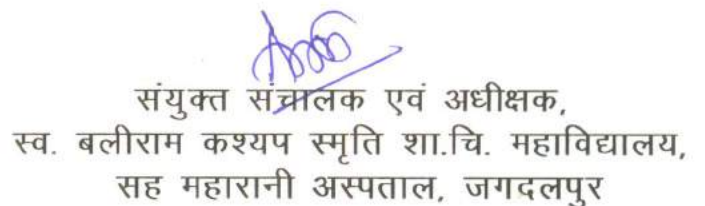 संयुक्त संचालक एवं अधीक्षक,
स्व. बलीराम कश्यप स्मृति शा.चि. महाविद्यालय,
सह महारानी अस्पताल, जगदलपुर